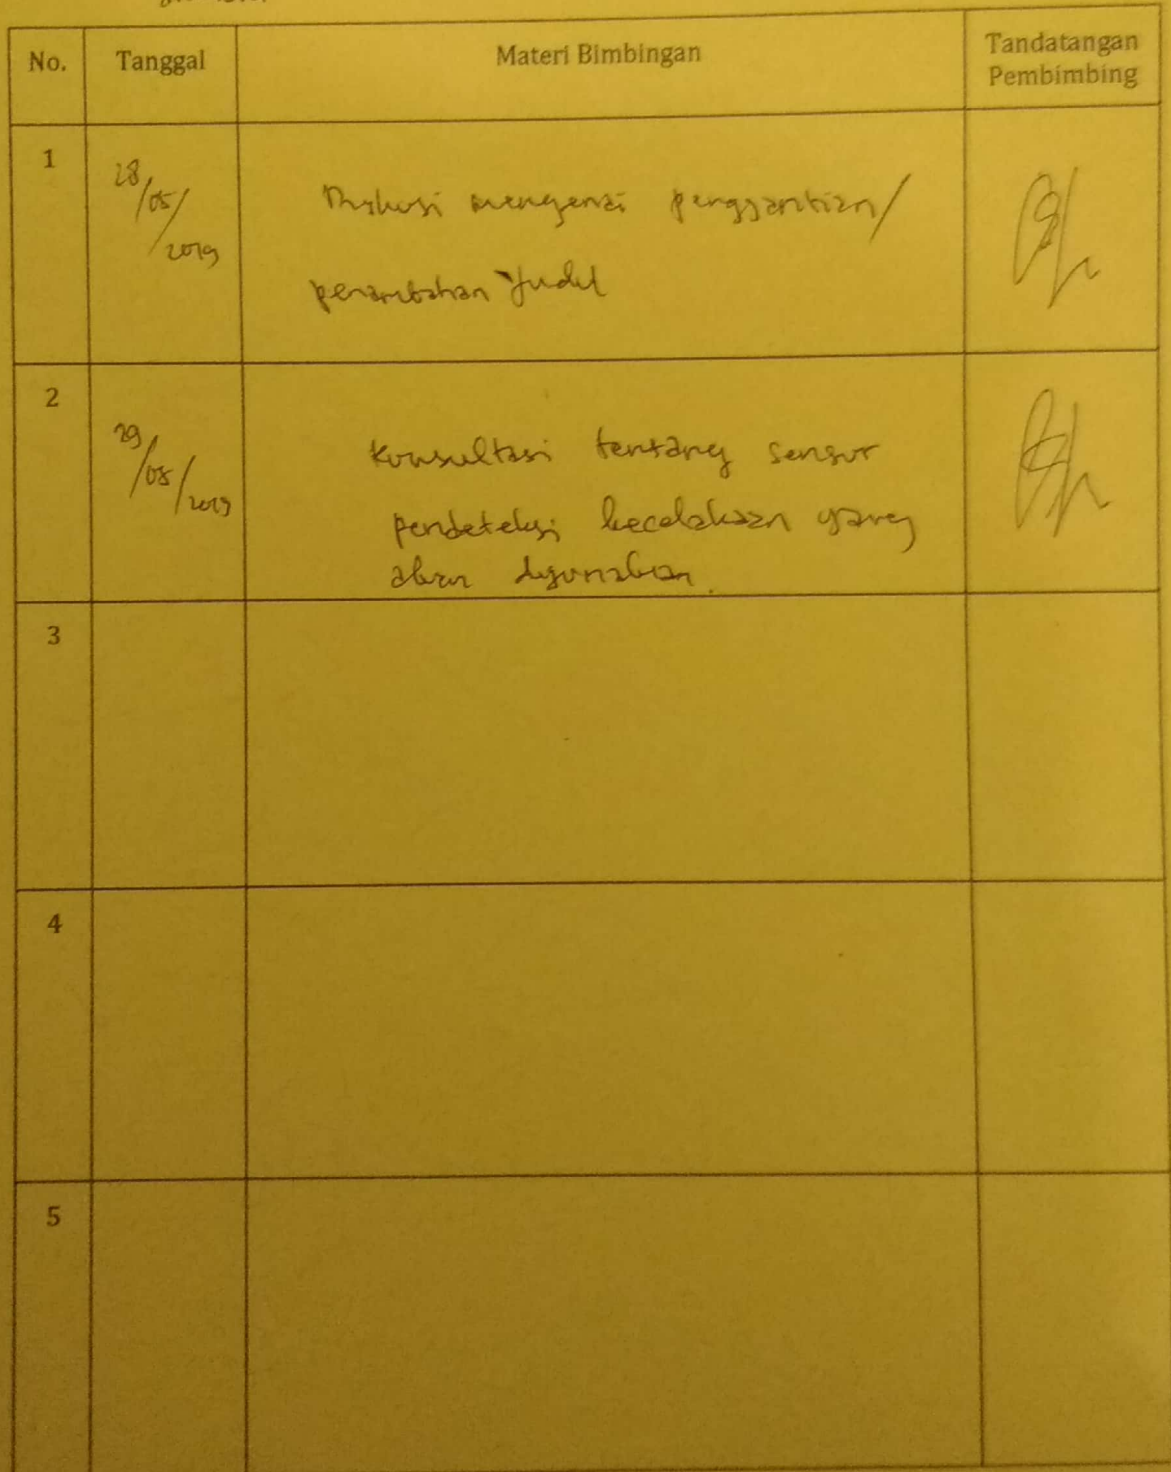 No. Tanggal Materi Bimbingan Tandatangan Pembimbing
1
28/05/2019
Diskusi mengenai penggantian/
penambahan Judul
2
29/05/2019
Konsultasi tentang sensor
pendeteksi kecelakaan yang
akan digunakan.
3
4
5